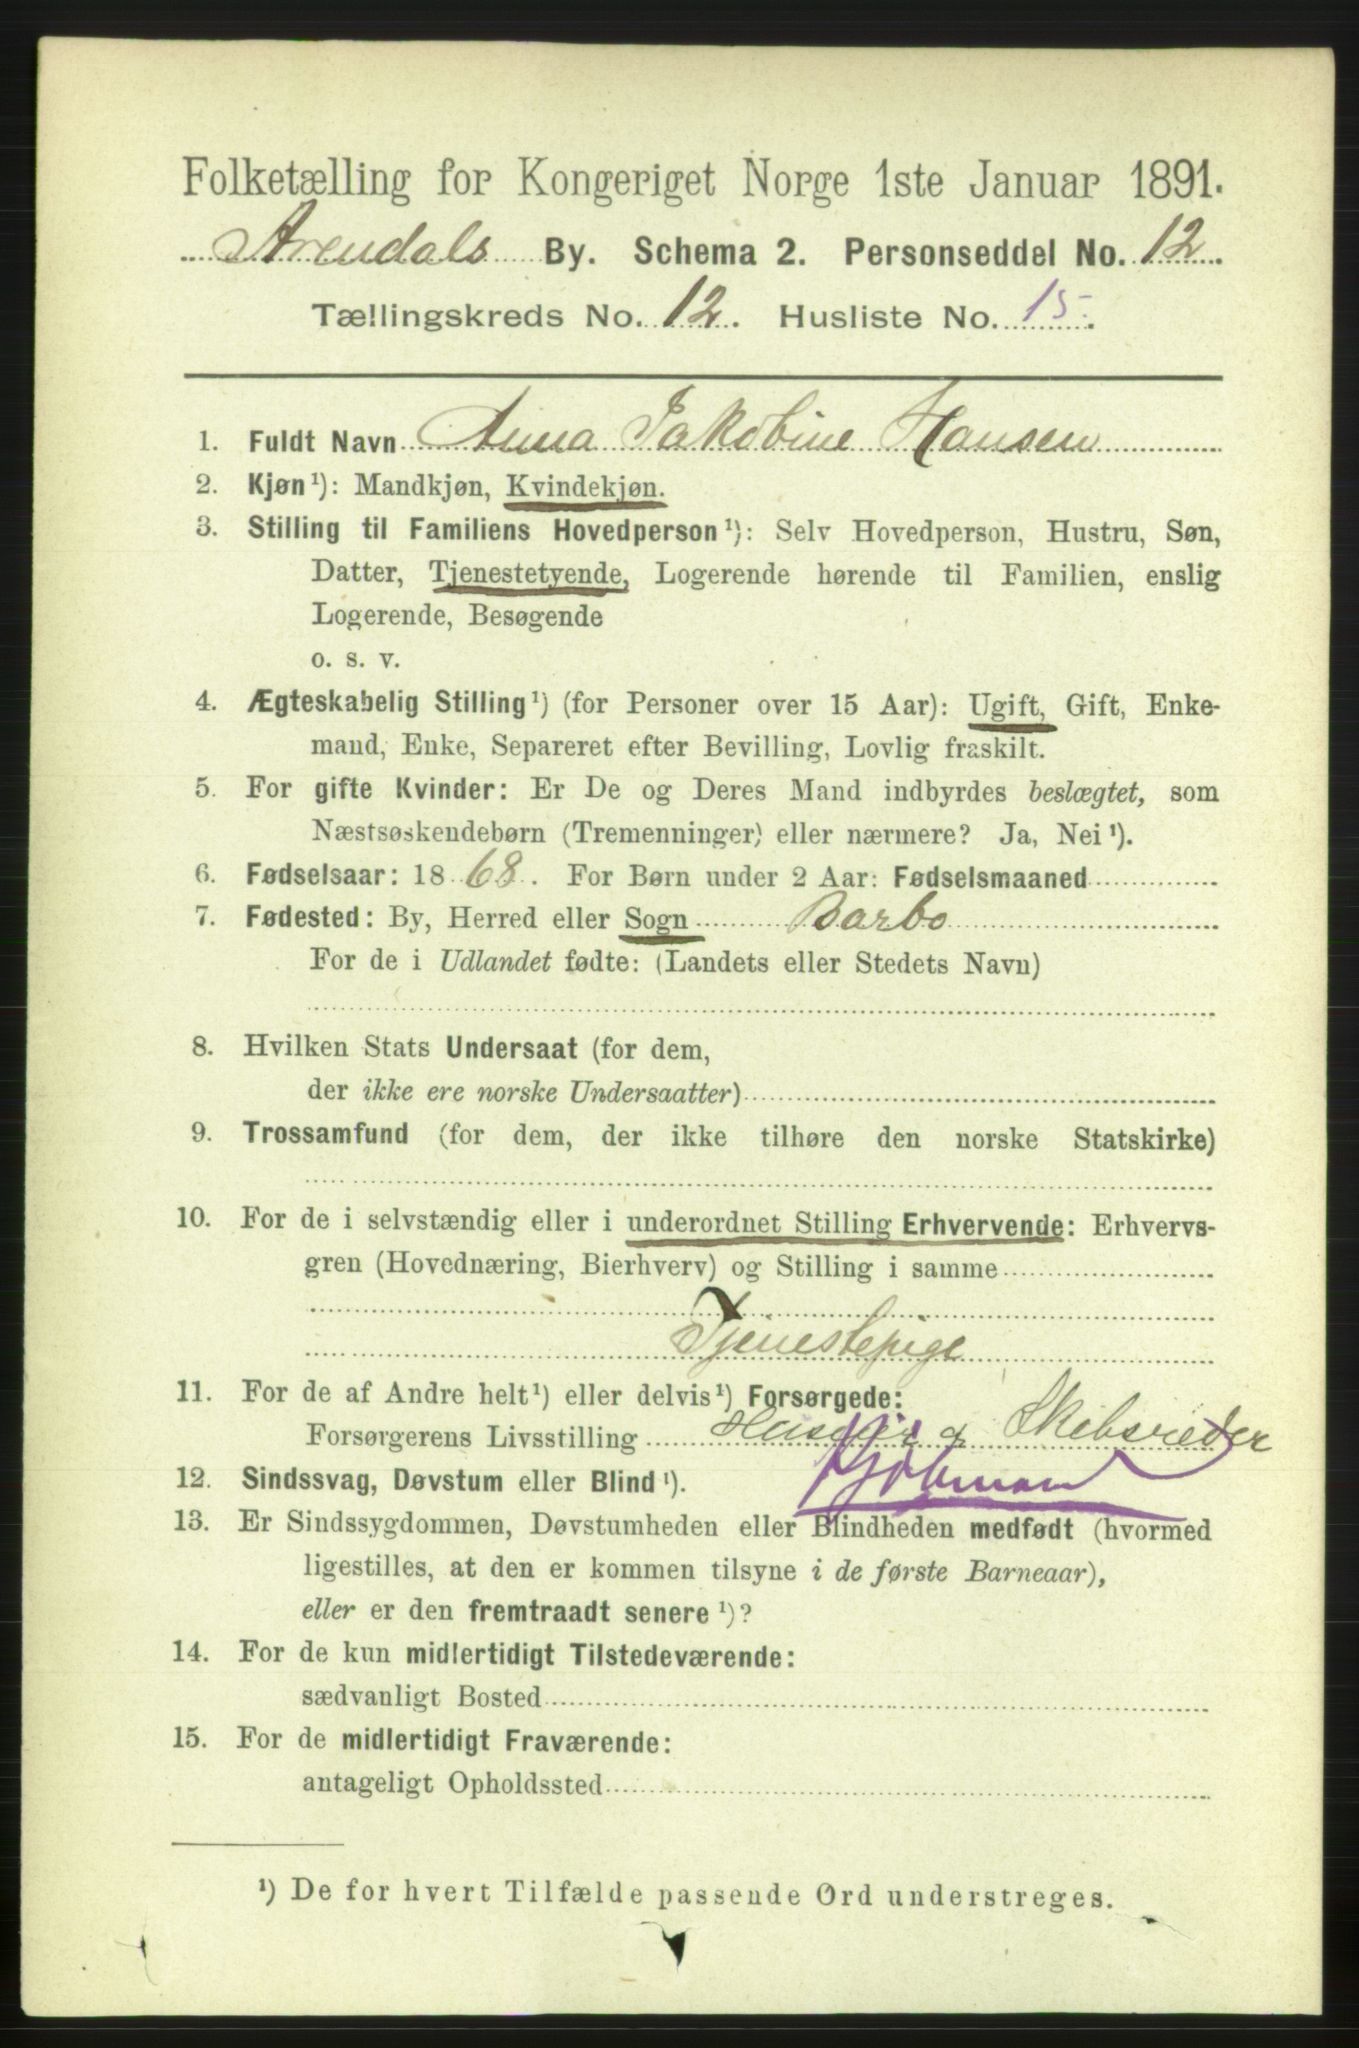 Folketælling for Kongeriget Norge 1ste Januar 1891.
Arendals By. Schema 2. Personseddel No. 12.
Tællingskreds No. 12. Husliste No. 15.
1. Fuldt Navn Anna Jakobine Hansen
2. Kjøn¹): Mandkjøn, Kvindekjøn.
3. Stilling til Familiens Hovedperson¹): Selv Hovedperson, Hustru, Søn,
Datter, Tjenestetyende, Logerende hørende til Familien, enslig
Logerende, Besøgende
o. s. v.
4. Ægteskabelig Stilling¹) (for Personer over 15 Aar): Ugift, Gift, Enke-
mand, Enke, Separeret efter Bevilling, Lovlig fraskilt.
5. For gifte Kvinder: Er De og Deres Mand indbyrdes beslægtet, som
Næstsøskendebørn (Tremenninger) eller nærmere? Ja, Nei¹).
6. Fødselsaar: 1868. For Børn under 2 Aar: Fødselsmaaned
7. Fødested: By, Herred eller Sogn Barbo
For de i Udlandet fødte: (Landets eller Stedets Navn)
8. Hvilken Stats Undersaat (for dem,
der ikke ere norske Undersaatter)
9. Trossamfund (for dem, der ikke tilhøre den norske Statskirke)
10. For de i selvstændig eller i underordnet Stilling Erhvervende: Erhvervs-
gren (Hovednæring, Bierhverv) og Stilling i samme
Tjenestepige
11. For de af Andre helt¹) eller delvis¹) Forsørgede:
Forsørgerens Livsstilling Skibsreder
Kjøbmand
12. Sindssvag, Døvstum eller Blind¹).
13. Er Sindssygdommen, Døvstumheden eller Blindheden medfødt (hvormed
ligestilles, at den er kommen tilsyne i de første Barneaar),
eller er den fremtraadt senere¹)?
14. For de kun midlertidigt Tilstedeværende:
sædvanligt Bosted
15. For de midlertidigt Fraværende:
antageligt Opholdssted
¹) De for hvert Tilfælde passende Ord understreges.